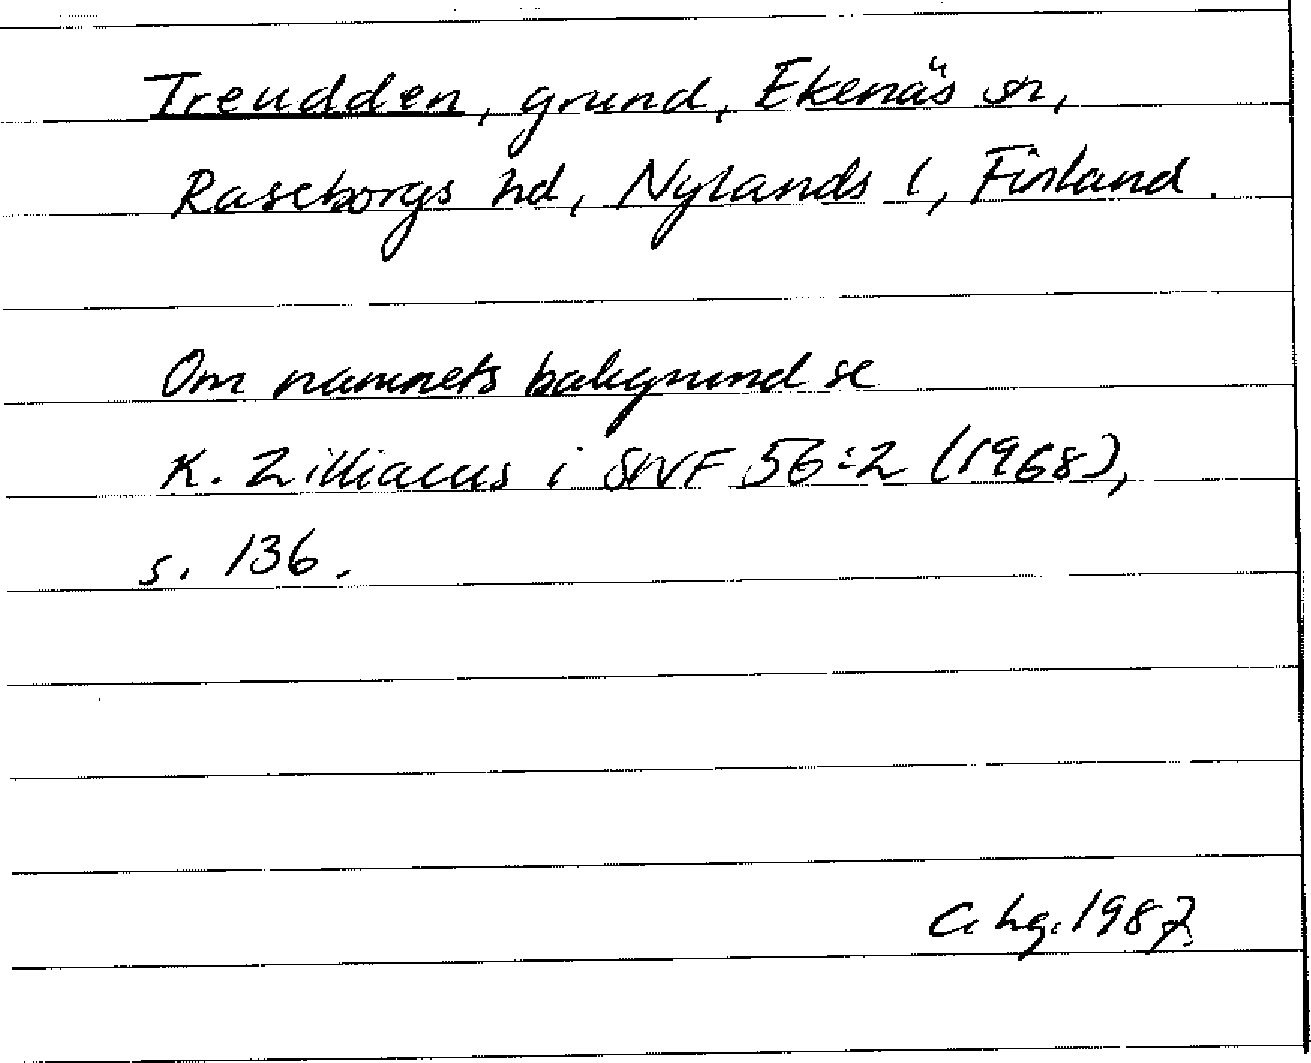 Treudden, grund, Ekenäs sn,
Raseborgs hd, Nylands l, Finland.
Om namnets bakgrund se
K. Zilliacus i SNF 56:2 (1968),
s. 136.
1987